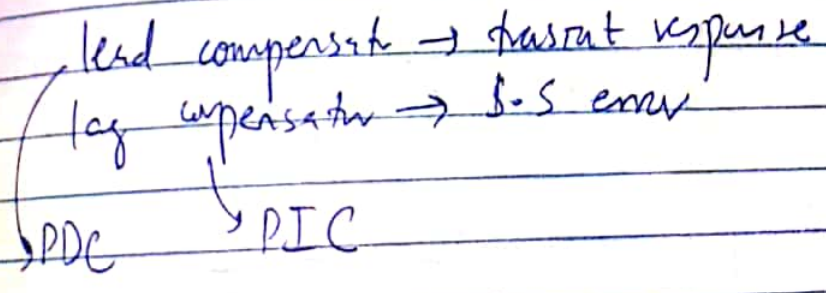 lead compensator → transient response
lag compensator → S.S error
PDC PIC